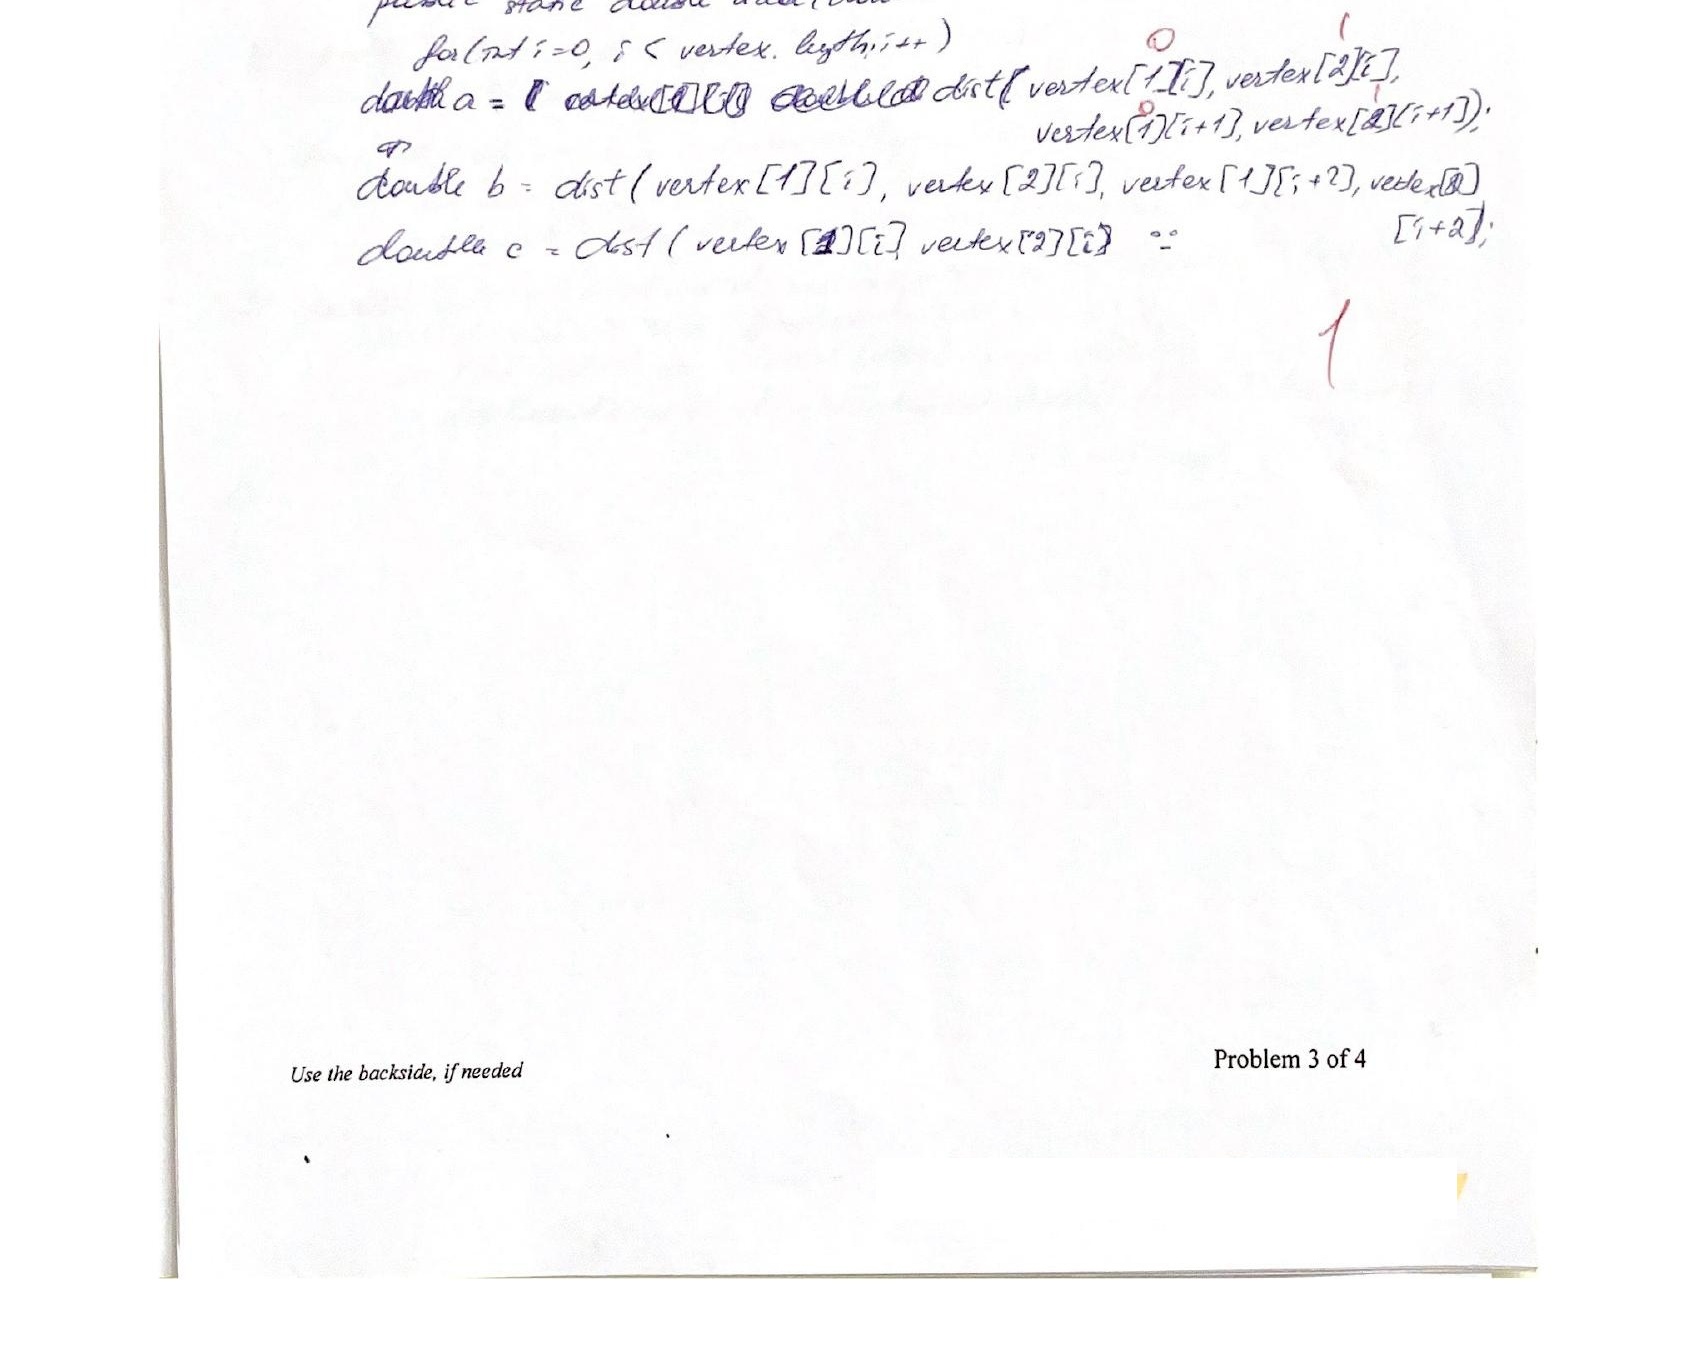 public static double
for(int i=0, i < vertex. length, i++)
0 1
double a = dist( vertex[1][i], vertex[2][i],
0 1
vertex[1][i+1], vertex[2][i+1]);
double b = dist ( vertex [1][i], vertex [2][i], vertex [1][i+2], vertex[2]
[i+2];
double c = dist ( vertex [1][i] vertex[2][i]
1
Use the backside, if needed
Problem 3 of 4